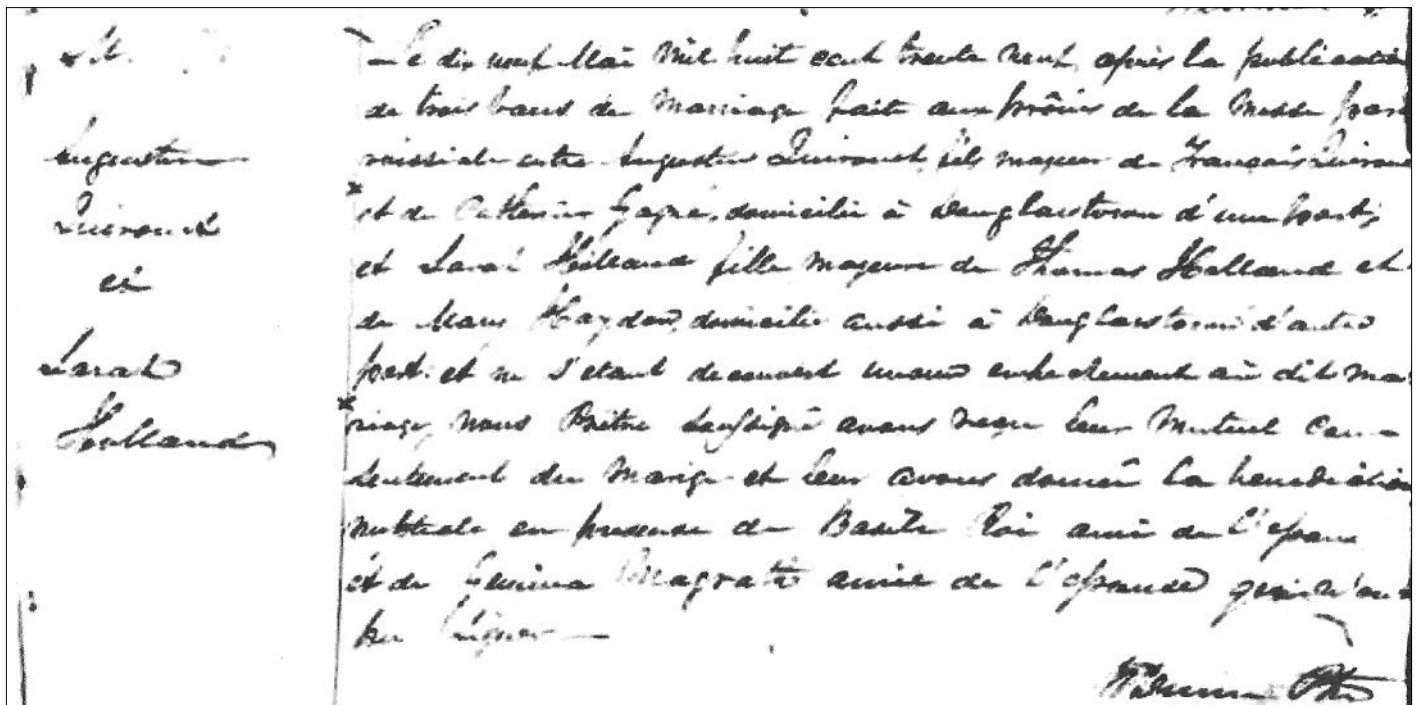 M.
Augustin
Quirouet
et
Sarah
Holland
Le dix neuf Mai mil huit cent trente neuf, après la publication
de trois bans de mariage faite aux prônes de la Messe paro
issiale entre Augustin Quirouet, fils majeur de François Quirouet
et de Catherine Gagné, domicilié à Douglastown d'une part;
et Sarah Holland fille majeure de Thomas Holland et
de Mary Haydon, domicilié aussi à Douglastown d'autre
part: et ne s'étant découvert aucun empêchement au dit ma
riage, nous Prêtre Soussigné avons reçu leur mutuel con-
sentement de mariage et leur avons donné la bénédiction
nuptiale en présence de Basile Roi ami de l'époux
et de Magrath amie de l'épouse qui n'ont
pu signer
Ptre